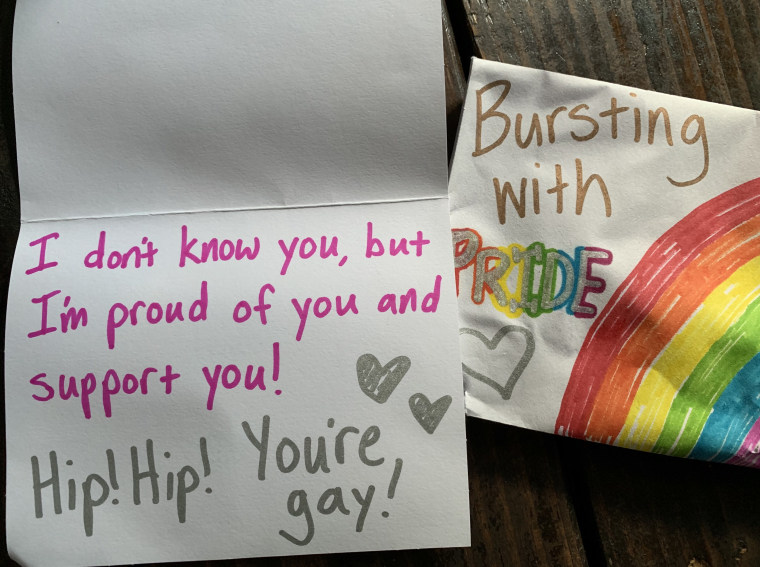 I don't know you, but
I'm proud of you and
support you!
Hip! Hip! You're
gay!
Bursting
with
PRIDE